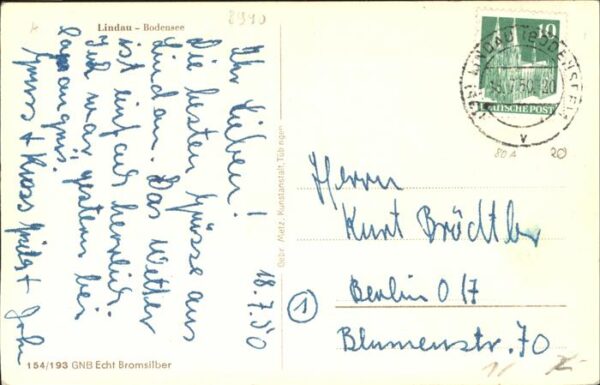 Lindau – Bodensee
8990
18.7.50
Ihr Lieben!
Die besten Grüsse aus
Lindau. Das Wetter
ist einfach herrlich.
Ich war gestern bei
Gruss + Kuss
Gebr. Metz, Kunstanstalt, Tübingen
154/193 GNB Echt Bromsilber
10
DEUTSCHE POST
LINDAU (BODENSEE)
Herrn
Kurt Brödtler
1
Berlin O 17
Blumenstr. 70
80A
20